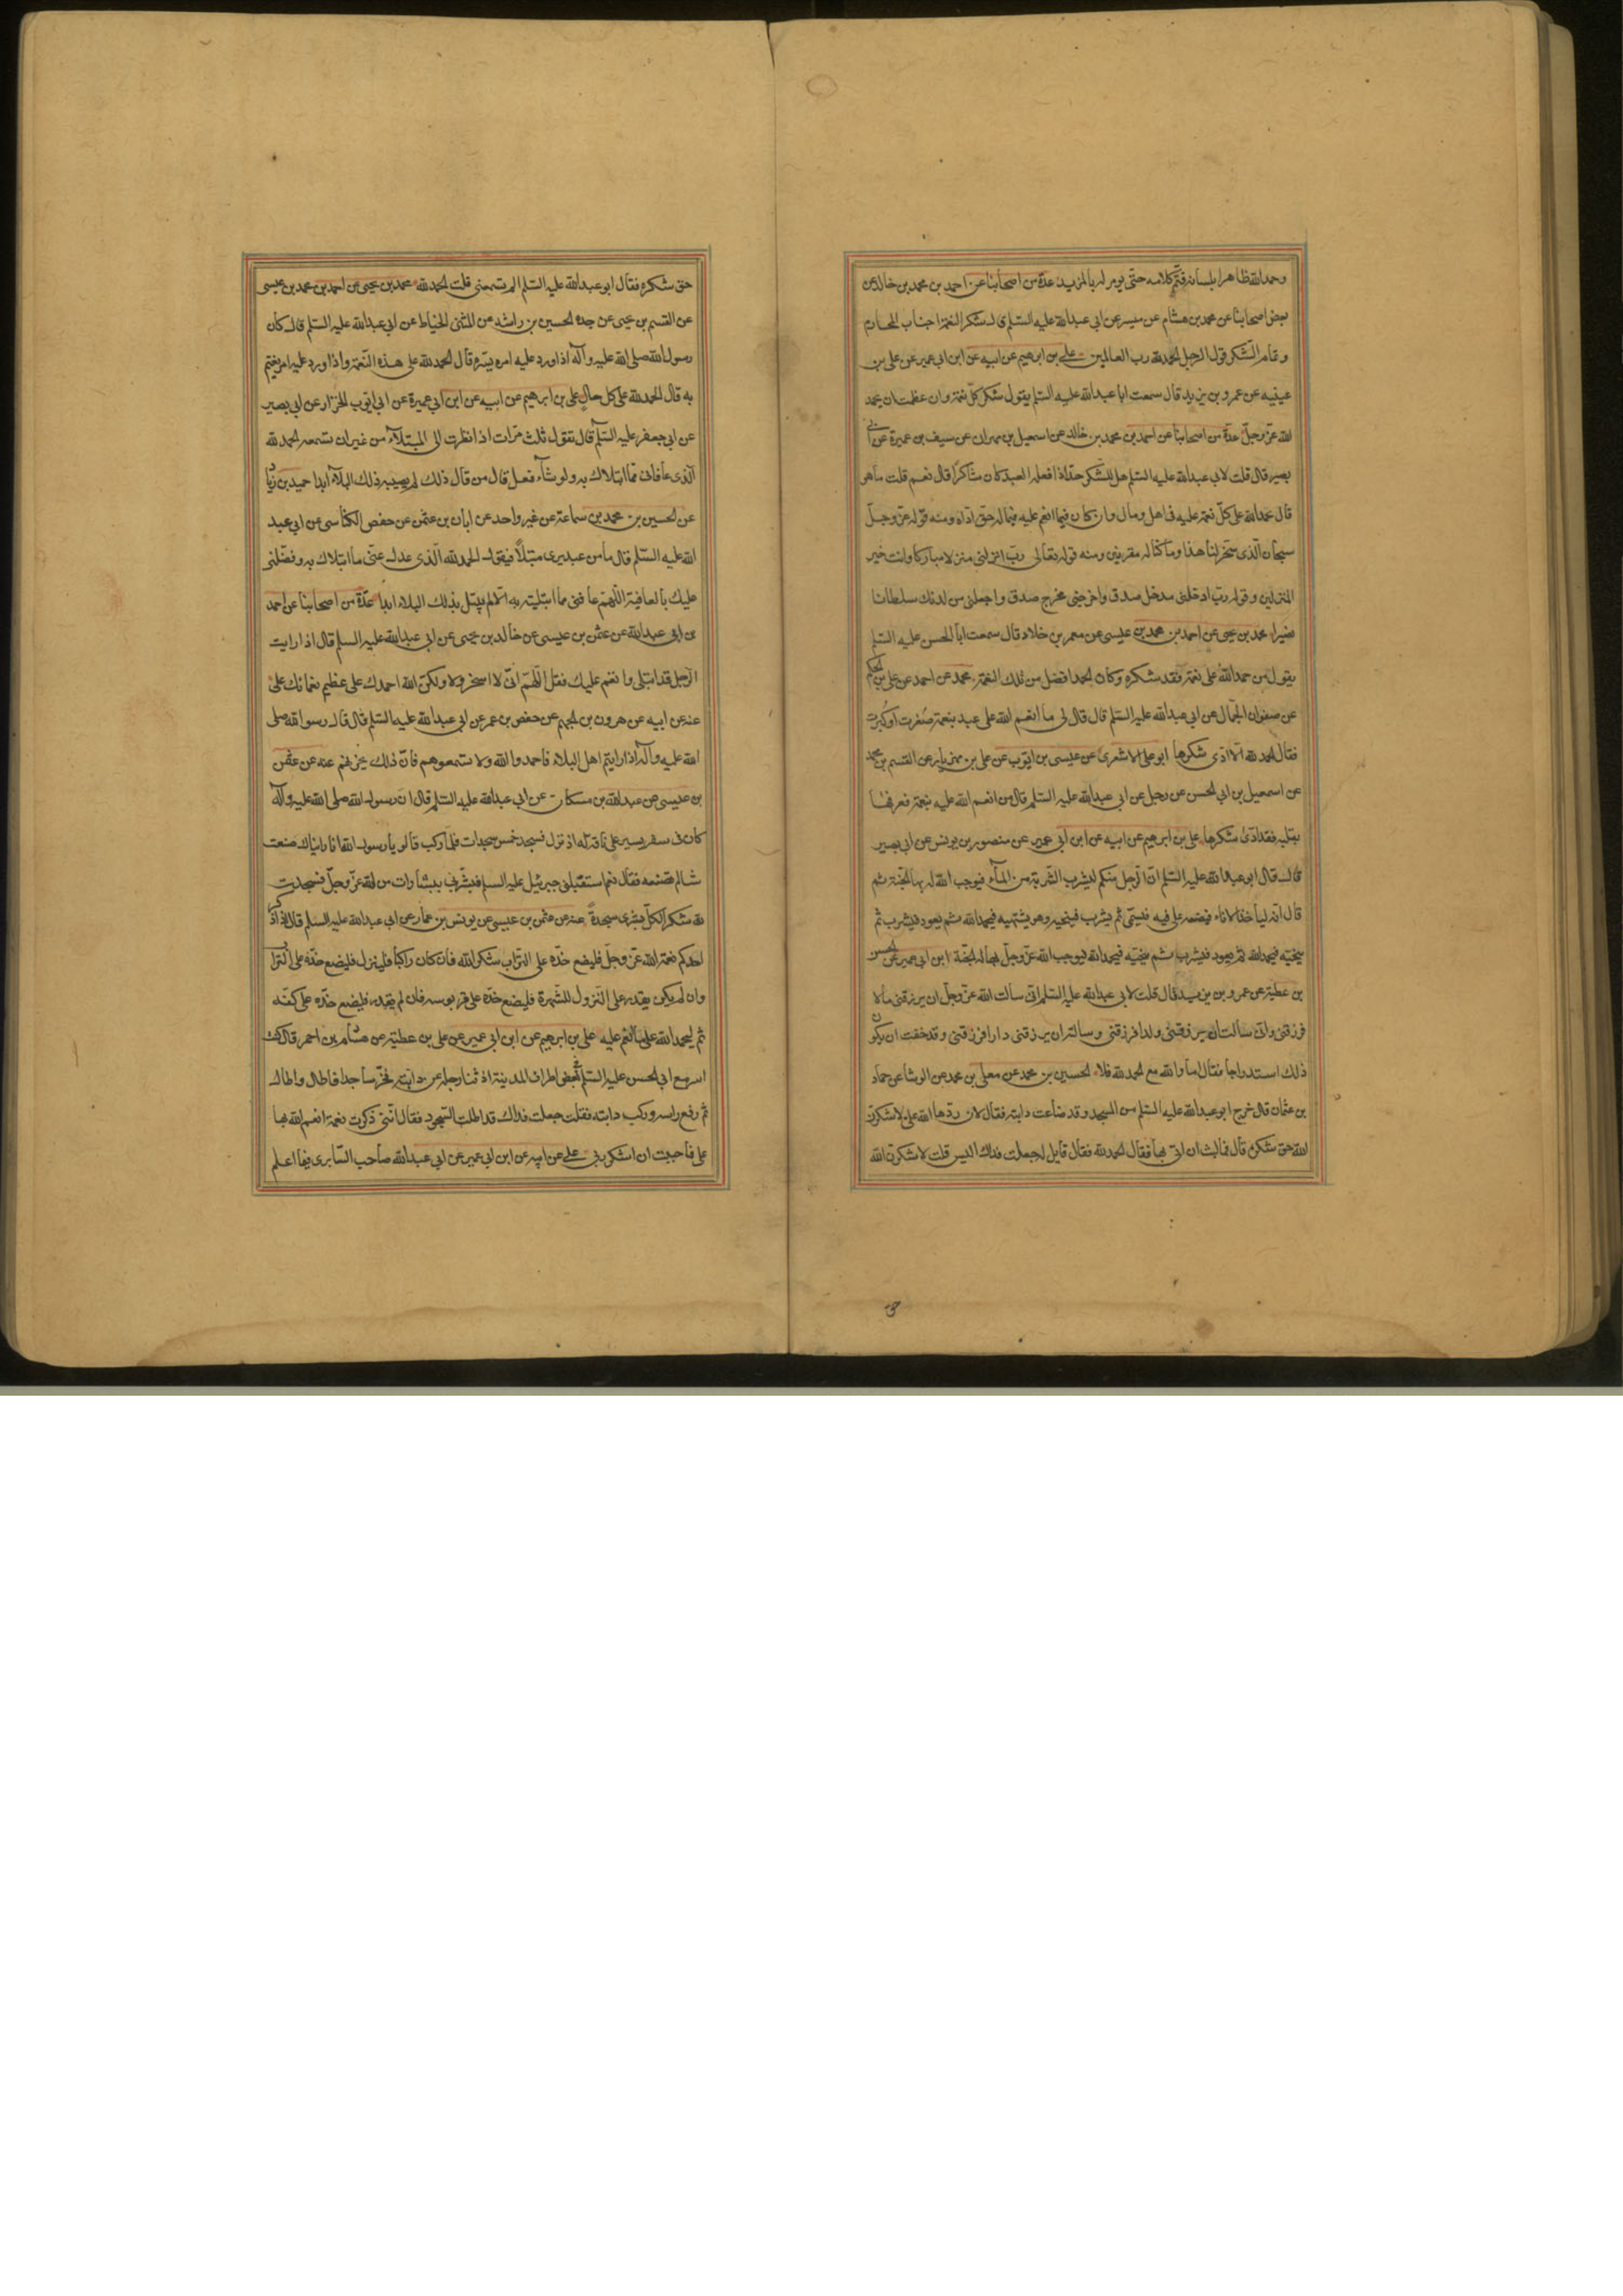 وحمد الله ظاهرا بلسانه فتم كلامه حتى يومر له بالمزيد عدة من اصحابنا عن احمد بن محمد بن خالد عن
بعض اصحابنا عن محمد بن هشام عن ميسر عن ابي عبد الله عليه السلم قال شكر النعمة اجتناب المحارم
وتمام الشكر قول الرجل الحمد لله رب العالمين علي بن ابرهيم عن ابيه عن ابن ابي عمير عن علي بن
عيينه عن عمرو بن يزيد قال سمعت ابا عبد الله عليه السلم يقول شكر كل نعمة وان عظمت ان يحمد
الله عز وجل عدة من اصحابنا عن احمد بن محمد بن خالد عن اسمعيل بن مهران عن سيف بن عميرة عن ابي
بصير قال قلت لابي عبد الله عليه السلم هل للشكر حد اذا فعله العبد كان شاكرا قال نعم قلت ما هو
قال يحمد الله على كل نعمة عليه في اهل ومال وان كان فيما انعم عليه في ماله حق اداه ومنه قوله عز وجل
سبحان الذي سخر لنا هذا وما كنا له مقرنين ومنه قوله تعالى رب انزلني منزلا مباركا وانت خير
المنزلين وقوله رب ادخلني مدخل صدق واخرجني مخرج صدق واجعلني من لدنك سلطانا
نصيرا محمد بن يحيى عن احمد بن محمد بن عيسى عن معمر بن خلاد قال سمعت ابا الحسن عليه السلم
يقول من حمد الله على نعمة فقد شكره وكان الحمد افضل من تلك النعمة محمد عن احمد عن علي بن الحكم
عن صفوان الجمال عن ابي عبد الله عليه السلم قال قال لي ما انعم الله على عبد بنعمة صغرت او كبرت
فقال الحمد لله الا ادى شكرها ابو علي الاشعري عن عيسى بن ايوب عن علي بن مهزيار عن القسم بن محمد
عن اسمعيل بن ابي الحسن عن رجل عن ابي عبد الله عليه السلم قال من انعم الله عليه بنعمة فعرفها
بقلبه فقد ادى شكرها علي بن ابرهيم عن ابيه عن ابن ابي عمير عن منصور بن يونس عن ابي بصير
قال قال ابو عبد الله عليه السلم ان الرجل منكم ليشرب الشربة من المآء فيوجب الله له بها الجنة ثم
قال انه لياخذ الاناء فيضعه على فيه فيسمي ثم يشرب فينحيه وهو يشتهيه فيحمد الله ثم يعود فيشرب ثم
ينحيه فيحمد الله ثم يعود فيشرب ثم ينحيه فيحمد الله فيوجب الله عز وجل بها له الجنة ابن ابي عمير عن الحسن
بن عطية عن عمرو بن يزيد قال قلت لابي عبد الله عليه السلم اني سالت الله عز وجل ان يرزقني مالا
فرزقني واني سالت ان يرزقني ولدا فرزقني وسالته ان يرزقني دارا فرزقني وقد خفت ان يكون
ذلك استدراجا فقال اما والله مع الحمد لله فلا الحسين بن محمد عن معلى بن محمد عن الوشا عن حماد
بن عثمان قال خرج ابو عبد الله عليه السلم من المسجد وقد ضاعت دابته فقال لان ردها الله علي لاشكرن
الله حق شكره قال فما لبث ان اتي بها فقال الحمد لله فقال قايل له جعلت فداك اليس قلت لاشكرن الله
حق شكره فقال ابو عبد الله عليه السلم الم تسمعني قلت الحمد لله محمد بن يحيى عن احمد بن محمد بن عيسى
عن القسم بن يحيى عن جده الحسين بن راشد عن المثنى الحناط عن ابي عبد الله عليه السلم قال كان
رسول الله صلى الله عليه وآله اذا ورد عليه امر يسره قال الحمد لله على هذه النعمة واذا ورد عليه امر يغتم
به قال الحمد لله على كل حال علي بن ابرهيم عن ابيه عن ابن ابي عميرة عن ابي ايوب الخزار عن ابي بصير
عن ابي جعفر عليه السلم قال تقول ثلث مرات اذا نظرت الى المبتلاء من غير ان تسمعه الحمد لله
الذي عافاني مما ابتلاك به ولو شآء فعل قال من قال ذلك لم يصيبه ذلك البلآء ابدا حميد بن زياد
عن الحسين بن محمد بن سماعة عن غير واحد عن ابان بن عثمن عن حفص الكناسي عن ابي عبد
الله عليه السلم قال ما من عبد يرى مبتلا فيقول الحمد لله الذي عدل عني ما ابتلاك به وفضلني
عليك بالعافية اللهم عافني مما ابتليته به الا لم يبتل بذلك البلاء ابدا عدة من اصحابنا عن احمد
بن ابي عبد الله عن عثمن بن عيسى عن خالد بن يحيى عن ابي عبد الله عليه السلم قال اذا رايت
الرجل قد ابتلي وانعم عليك فقل اللهم اني لا اسخر ولا ولكن الله احمدك على عظيم نعمائك علي
عنه عن ابيه عن هرون بن الجهم عن حفص بن عمر عن ابي عبد الله عليه السلم قال قال رسول الله صلى
الله عليه وآله اذا رايتم اهل البلاء فاحمدوا الله ولا تسمعوهم فان ذلك يحزنهم عنه عن عثمن
بن عيسى عن عبد الله بن مسكان عن ابي عبد الله عليه السلم قال ان رسول الله صلى الله عليه وآله
كان في سفر يسير على ناقة له اذ نزل فسجد خمس سجدات فلما ركب قالو يا رسول الله انا رايناك صنعت
شيا لم تصنعه فقال نعم استقبلني جبرئيل عليه السلم فبشرني ببشارات من الله عز وجل فسجدت
لله شكرا لكل بشرى سجدة عنه عن عثمن بن عيسى عن يونس بن عمار عن ابي عبد الله عليه السلم قال اذا ذكر
احدكم نعمة الله عز وجل فليضع خده على التراب شكرا لله فان كان راكبا فلينزل فليضع خده على التراب
وان لم يكن يقدر على النزول للشهرة فليضع خده على قربوسه فان لم يقدر فليضع خده على كفه
ثم ليحمد الله على ما انعم عليه علي بن ابرهيم عن ابن ابي عمير عن علي بن عطية عن هشام بن احمر قال كنت
اسير مع ابي الحسن عليه السلم في بعض اطراف المدينة اذ ثنا رجله عن دابته فخر ساجدا فاطال واطال
ثم رفع راسه وركب دابته فقلت جعلت فداك قد اطلت السجود فقال انني ذكرت نعمة انعم الله بها
علي فاحببت ان اشكر ربي علي عن ابيه عن ابن ابي عمير عن ابي عبد الله صاحب السابري فيما اعلم